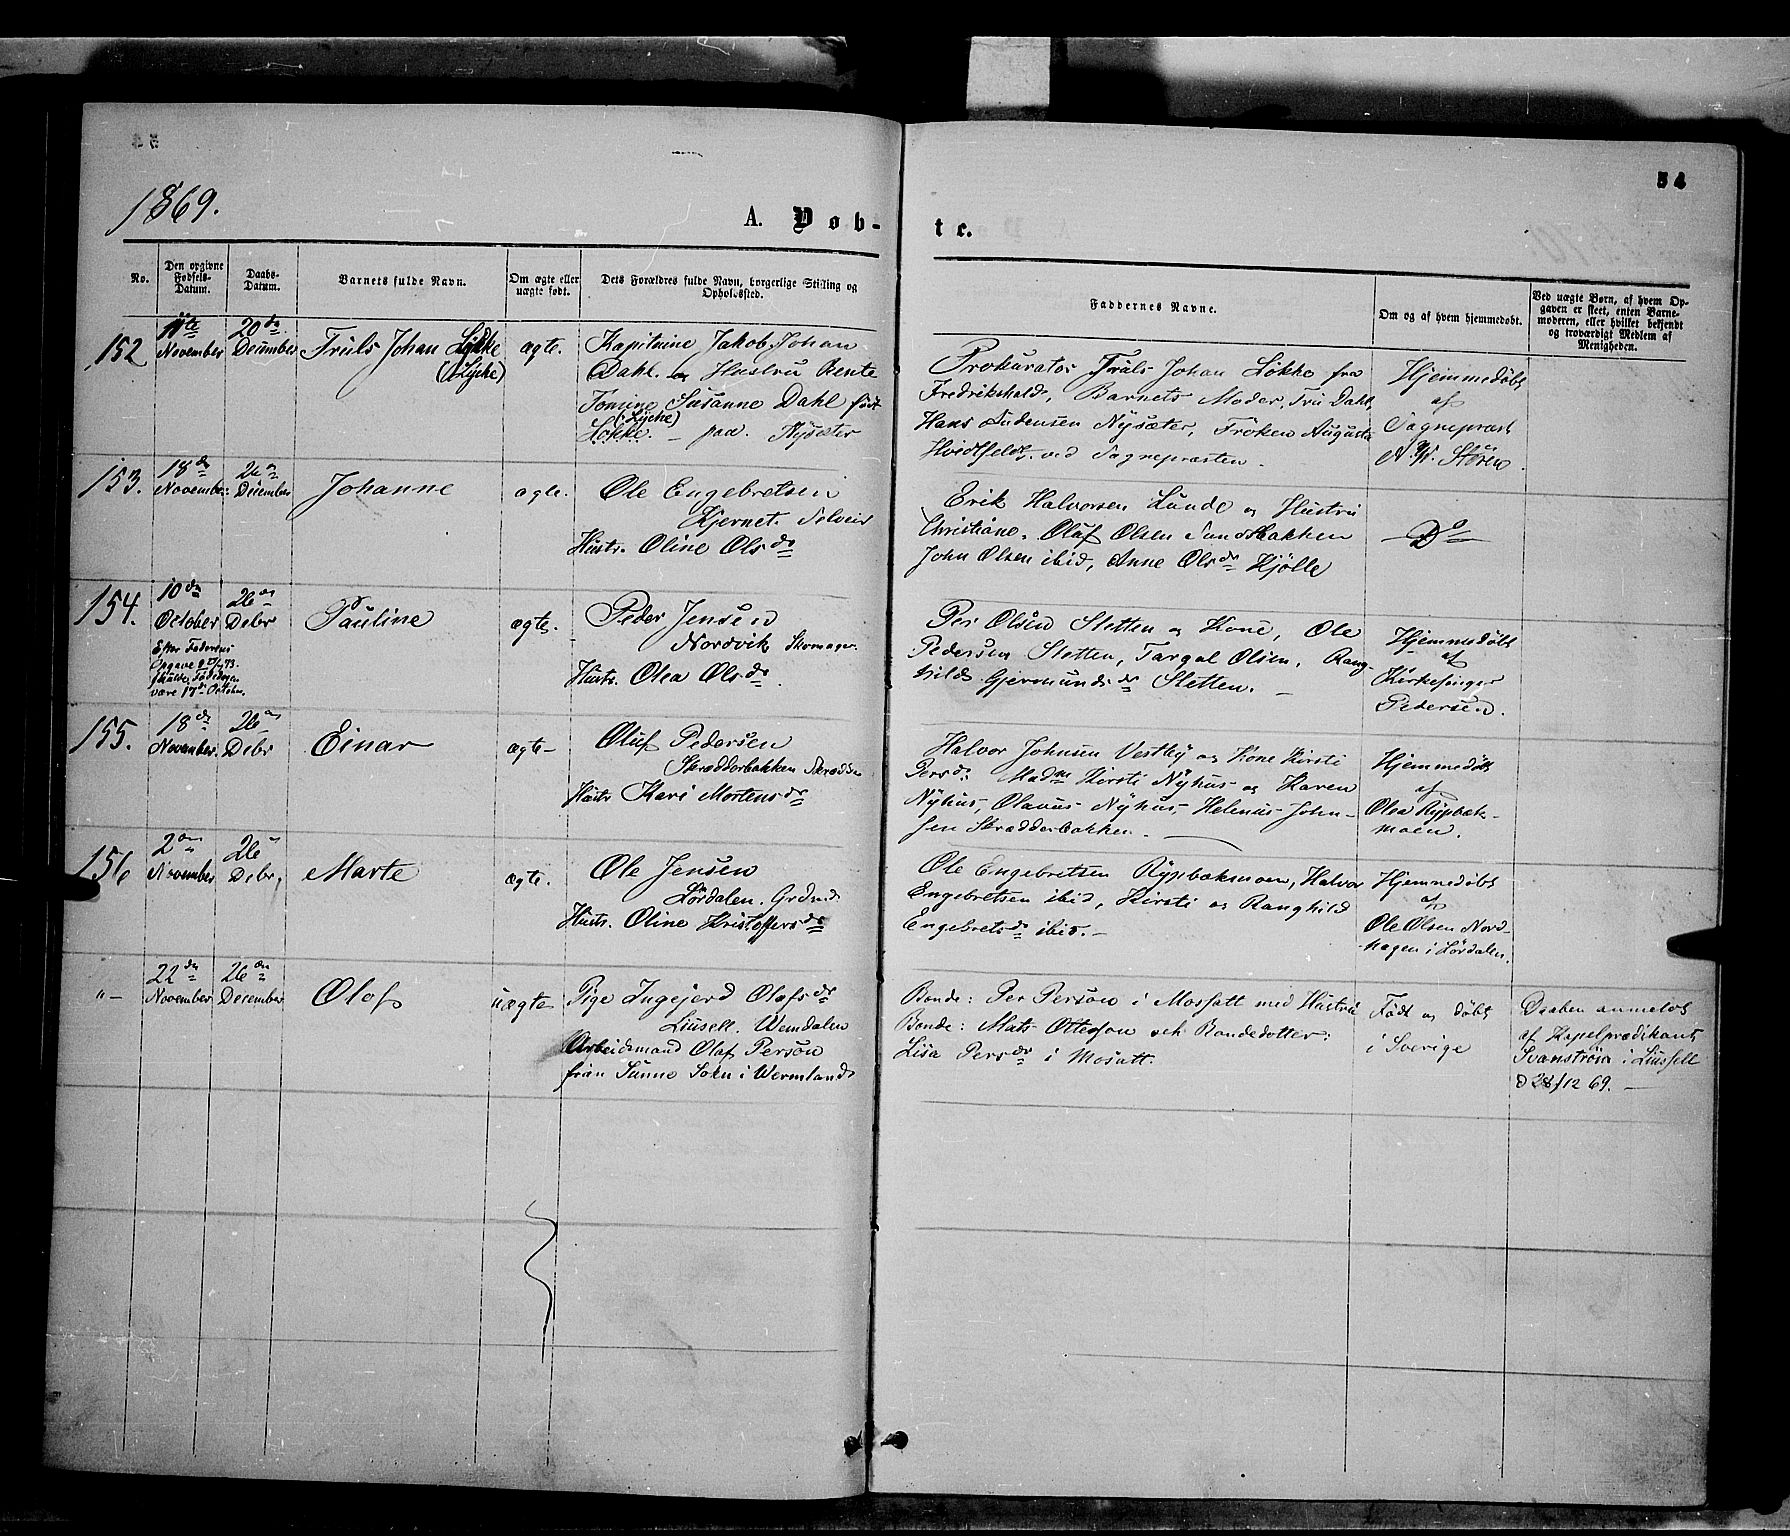 54
1869.
A. Døb-
te.
No.
Den opgivne Fødsels-Datum.
Daabs-Datum.
Barnets fulde Navn.
Om ægte eller uægte født.
Dets Forældres fulde Navn, borgerlige Stilling og Opholdssted.
Faddernes Navne.
Om og af hvem hjemmedøbt.
Ved uægte Børn, af hvem Opgaven er skeet, enten Barnemoderen, eller hvilket bekjendt og troværdigt Medlem af Menigheden.
152
11te November
20de December
Truls Johan Løkke
(Lycke)
ægte.
Kapitaine Jakob Johan
Dahl og Hustru Bente
Tomine Susanne Dahl født
(Lycke)
Løkke. – paa Nysæter
Prokurator Truls Johan Løkke fra
Fredrikshald, Barnets Moder, Fru Dahl,
Hans Nysæter, Frøken Augusta
Hvidtfeldt ved Sognepræsten.
Hjemmedøbt
af
Sognepræst
Støren.
153.
18de November
26de December
Johanne
ægte.
Ole Engebretsen
Kjernet. Selveier
Hustr. Oline Olsdr
Erik Halvorsen Lunde og Hustru
Christiane. Oluf Olsen Sandbakken
John Olsen ibid, Anne Olsdr Kjølle
Do
154.
10de October
26de Debr
Efter Faderens
Opgave
skulde Fødedagen
være 17de Octobr.
Pauline
ægte.
Peder Jensen
Nordvik Skomager
Hustr. Olea Olsdr.
Per Olsen Sletten og Kone, Ole
Pedersen Sletten, Targal Olsen, Rang-
hild Gjermundsdr Sletten. –
Hjemmedøbt
af
Kirkesanger
Pedersen.
155.
18de November.
26de Debr
Einar
ægte –
Oluf Pedersen
Skrædderbakken
Hustr Kari Mortensdr
Halvor Johnsen Vestby og Kone Kirsti
Persdr. Madme Kirsti Nyhus og Karen
Nyhus, Olavus Nyhus, Helenus John-
sen Skrædderbakken. –
Hjemmedøbt
af
Olea Rypbæk-
moen.
156
2den November
26de Debr,
Marte
ægte.
Ole Jensen
Lördalen. Grdmd
Hustr. Oline Kristoffersdr
Ole Engebretsen Rypbækmoen, Halvor
Engebretsen ibid, Kirsti og Ranghild
Engebretsdr ibid. –
Hjemmedøbt
af
Ole Olsen Nord-
hagen i Lördalen.
" –
22de November
26de December
Olof
uægte
Pige Ingejerd Olafsdr
Liusell. Wemdalen
Arbeidsmand Olaf Persön
från Sunne Sokn i Wermland
Bonde: Per Persön i Mosätt med Hustru
Bonde: Mats Ottosson och Bondedotter:
Lisa Persdr i Mosätt.
Født og døbt
i Sverige
Daaben anmeldt
af Kapelprædikant
Svanström i Liusfell
d 28/12 69. –